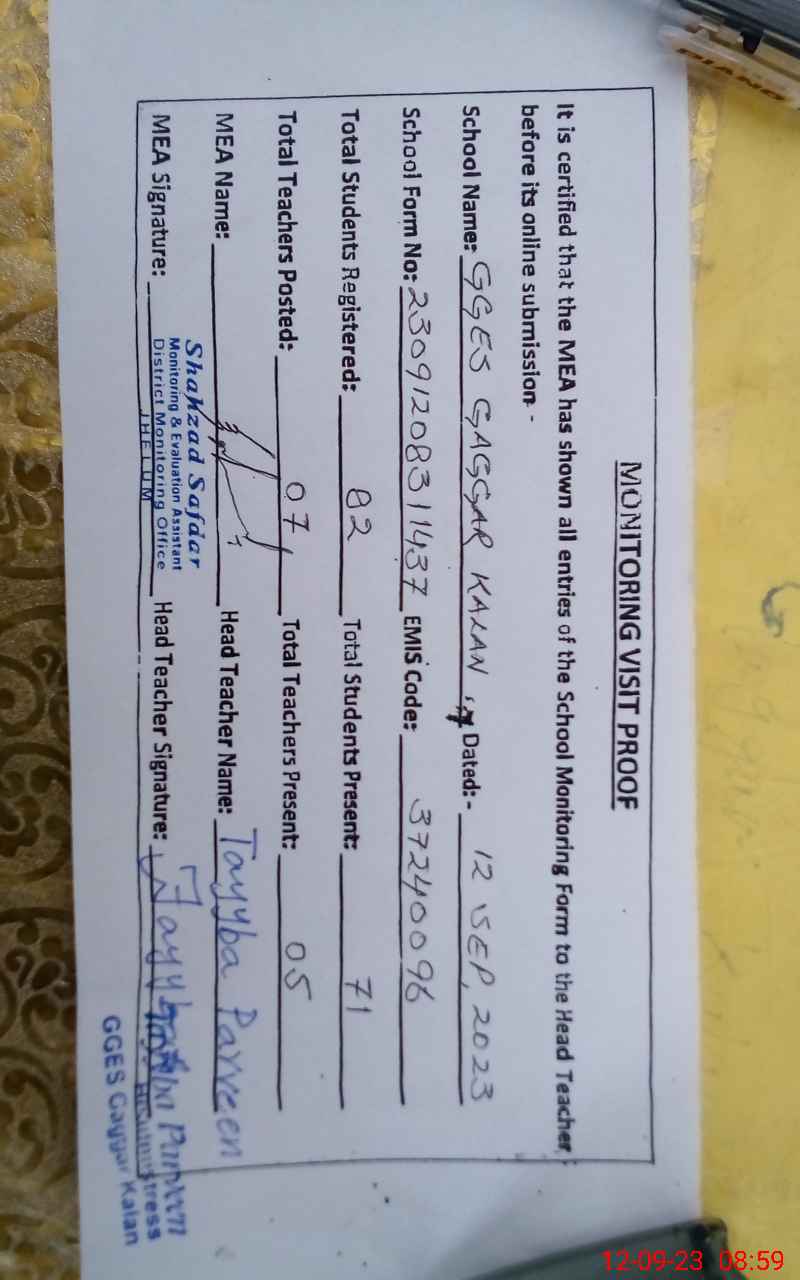 MONITORING VISIT PROOF
It is certified that the MEA has shown all entries of the School Monitoring Form to the Head Teacher
before its online submission -
School Name: GGES GAGGAR KALAN Dated:- 12 SEP, 2023
School Form No: 23091208311437 EMIS Code: 37240096
Total Students Registered: 82 Total Students Present: 71
Total Teachers Posted: 07 Total Teachers Present: 05
MEA Name: Head Teacher Name: Tayyba Parveen
MEA Signature: Head Teacher Signature: Tayyba
Shahzad Safdar
Monitoring & Evaluation Assistant
District Monitoring Office
JHELUM
GGES Gaggar Kalan
PIANO
12-09-23 08:59